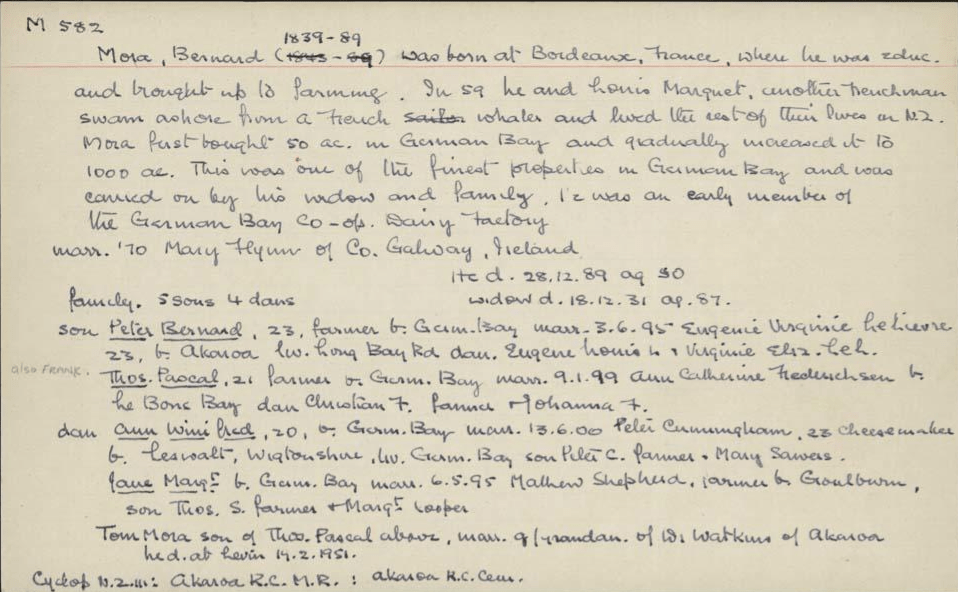 M 582
1839-89
Mora, Bernard (1843-89) was born at Bordeaux, France, where he was educ.
and brought up to farming. In 59 he and Louis Marquet, another Frenchman
swam ashore from a French sailor whaler and lived the rest of their lives in N.Z.
Mora first bought 50 ac. in German Bay and gradually increased it to
1000 ac. This was one of the finest properties in German Bay and was
carried on by his widow and family. He was an early member of
the German Bay Co-op. Dairy Factory
marr. '70 Mary Flynn of Co. Galway, Ireland
He d. 28.12.89 ag 50
family. 5 sons 4 daus
widow d. 18.12.31 ag. 87.
son Peter Bernard, 23, farmer b. Germ. Bay marr. 3.6.95 Eugenie Virginie Lelievre
23, b. Akaroa liv. Long Bay Rd dau. Eugene Louis L & Virginie Eliz. Leh.
also FRANK.
Thos. Pascal, 21 farmer b. Germ. Bay marr. 9.1.99 Ann Catherine Frederichsen b.
Le Bons Bay dau Christian F. farmer & Johanna F.
dau Ann Winifred, 20, b. Germ. Bay marr. 13.6.00 Peter Cunningham, 23 cheesemaker
b. Leswalt, Wigtonshire, liv. Germ. Bay son Peter C. farmer & Mary Sawers.
Jane Margt b. Germ. Bay marr. 6.5.95 Mathew Shepherd, farmer b. Goulburn,
son Thos. S. farmer & Margt Cooper
Tom Mora son of Thos. Pascal above, marr. g/grandau. of Watkins of Akaroa
he d. at Levin 14.2.1951.
Cyclop N.Z. III: Akaroa R.C. M.R. : Akaroa R.C. Cem.